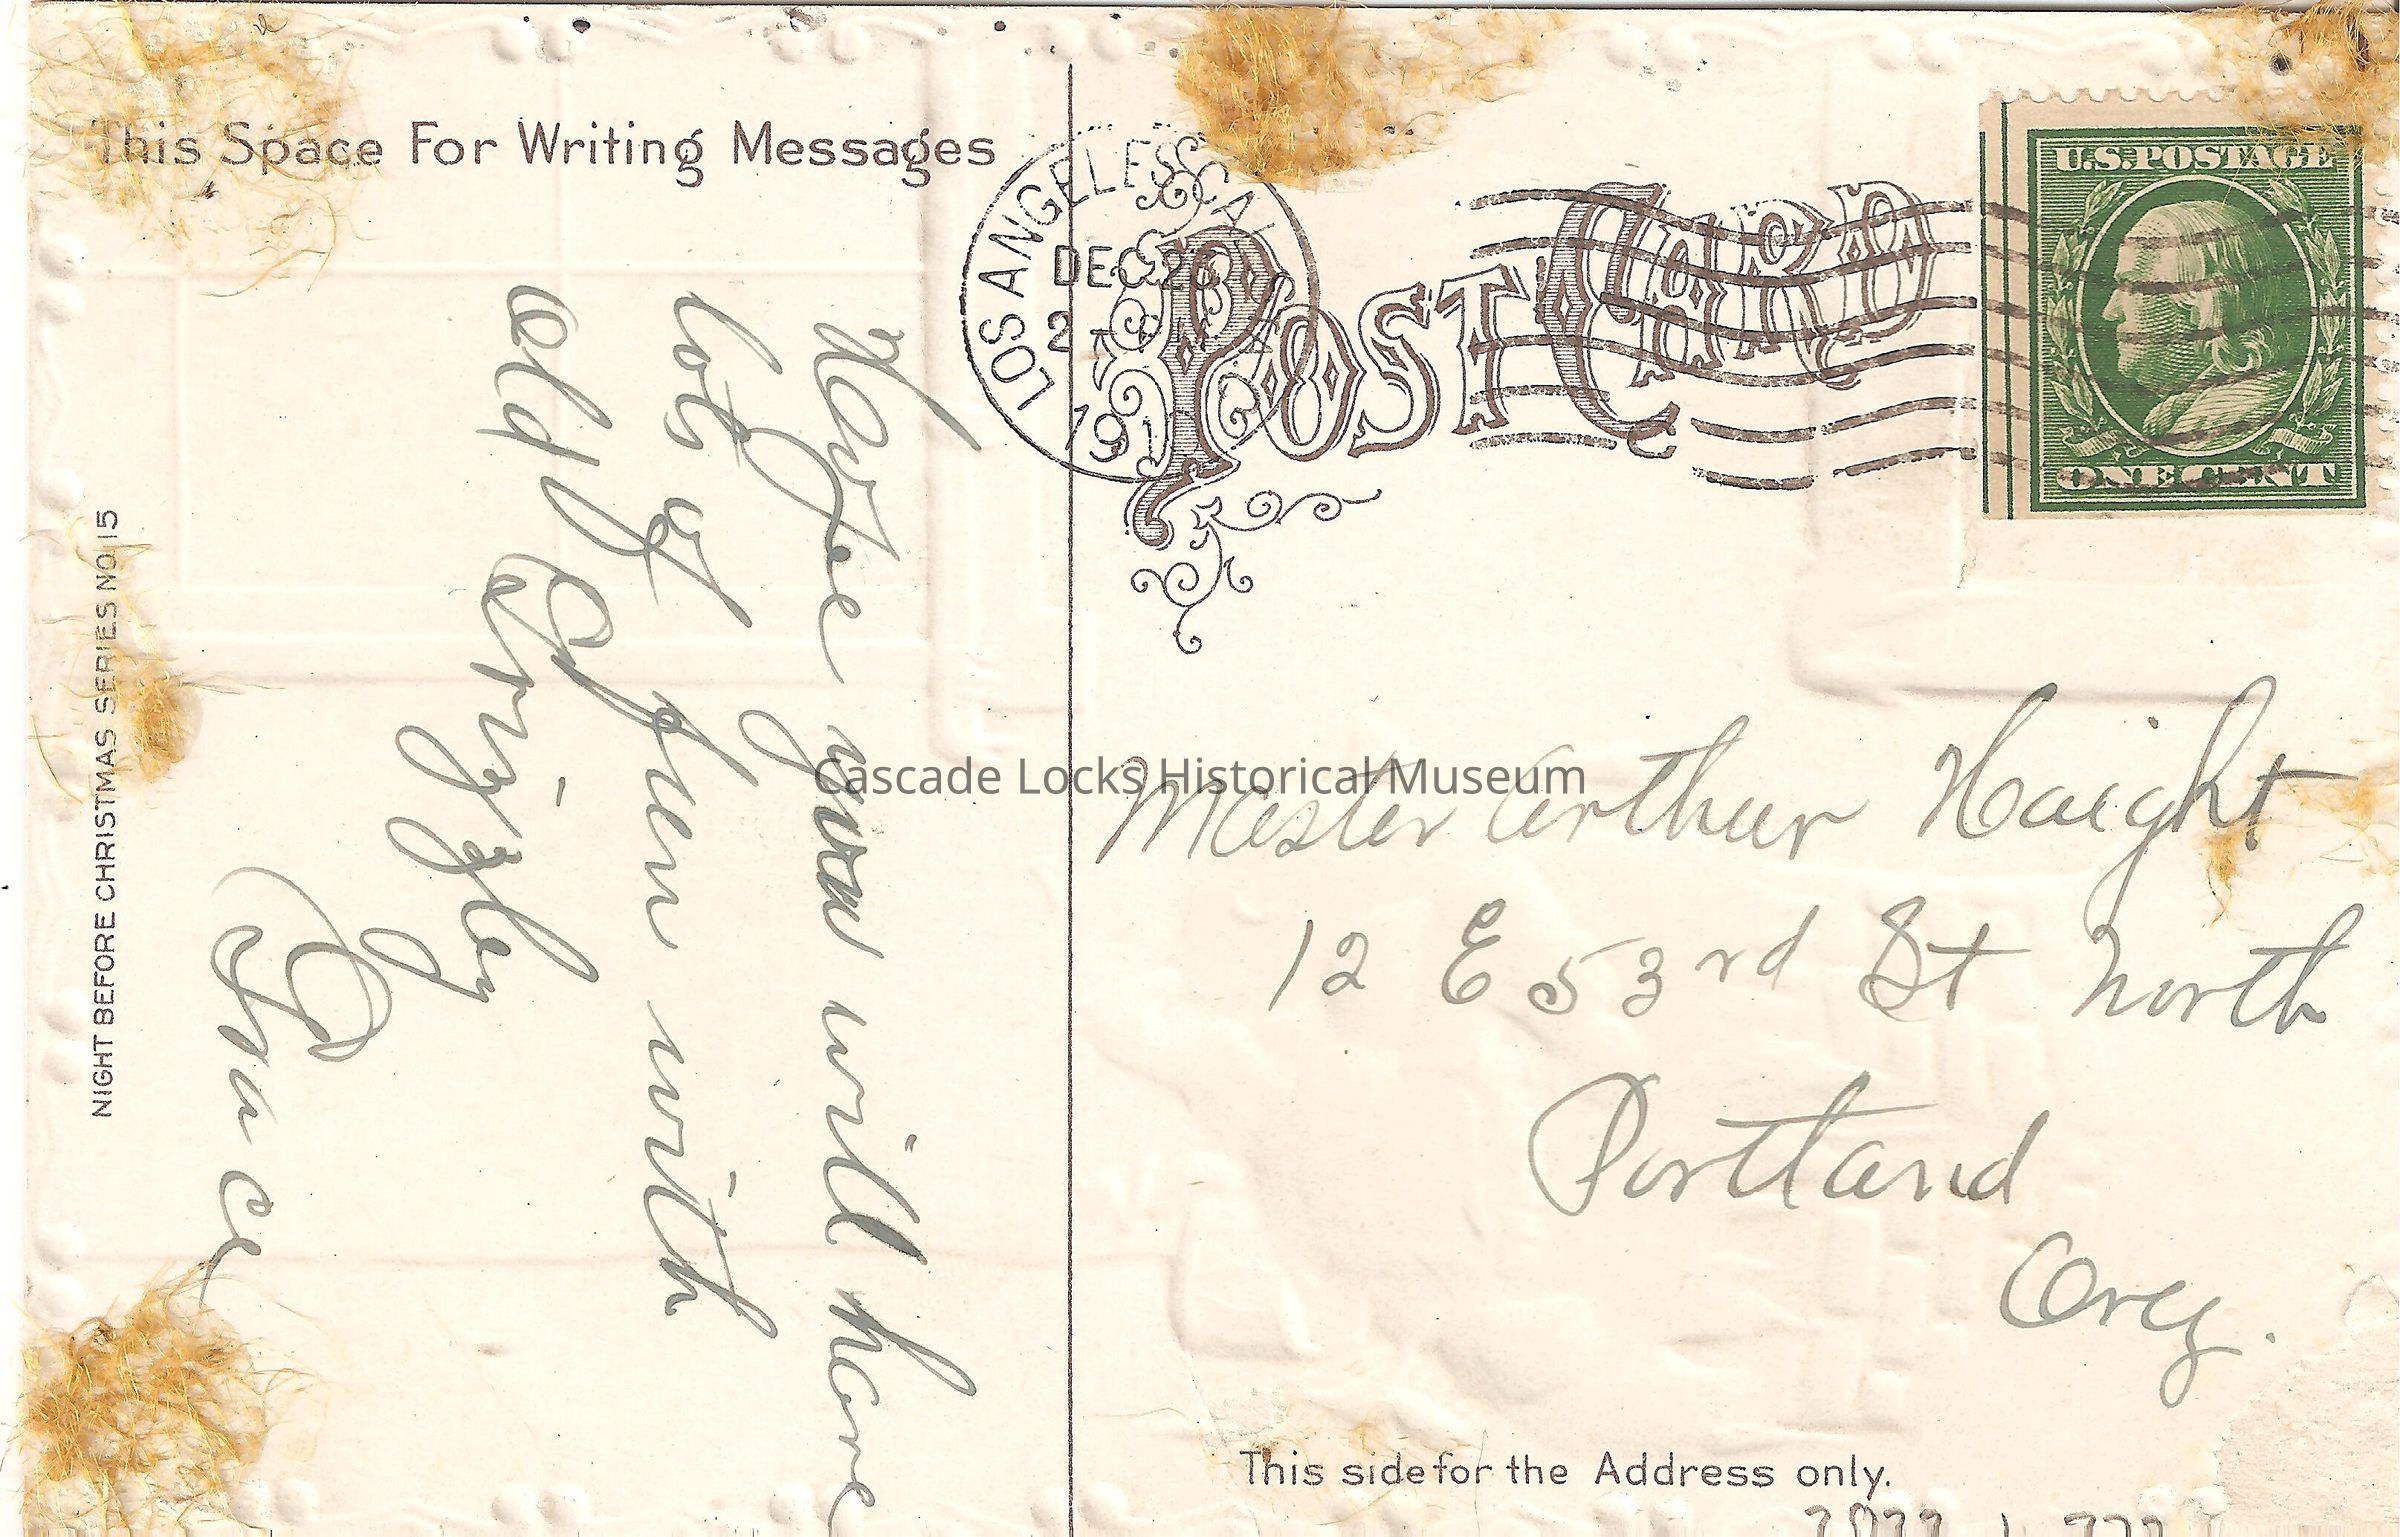 This Space For Writing Messages
Hope you will have
lots of fun with
old Kringley
Grace
NIGHT BEFORE CHRISTMAS SERIES NO 15
LOS ANGELES, CAL
DEC 23
2
191
POST CARD
U.S. POSTAGE
ONE CENT
Cascade Locks Historical Museum
Master Arthur Haight
12 E 53rd St North
Portland
Oreg.
This side for the Address only.